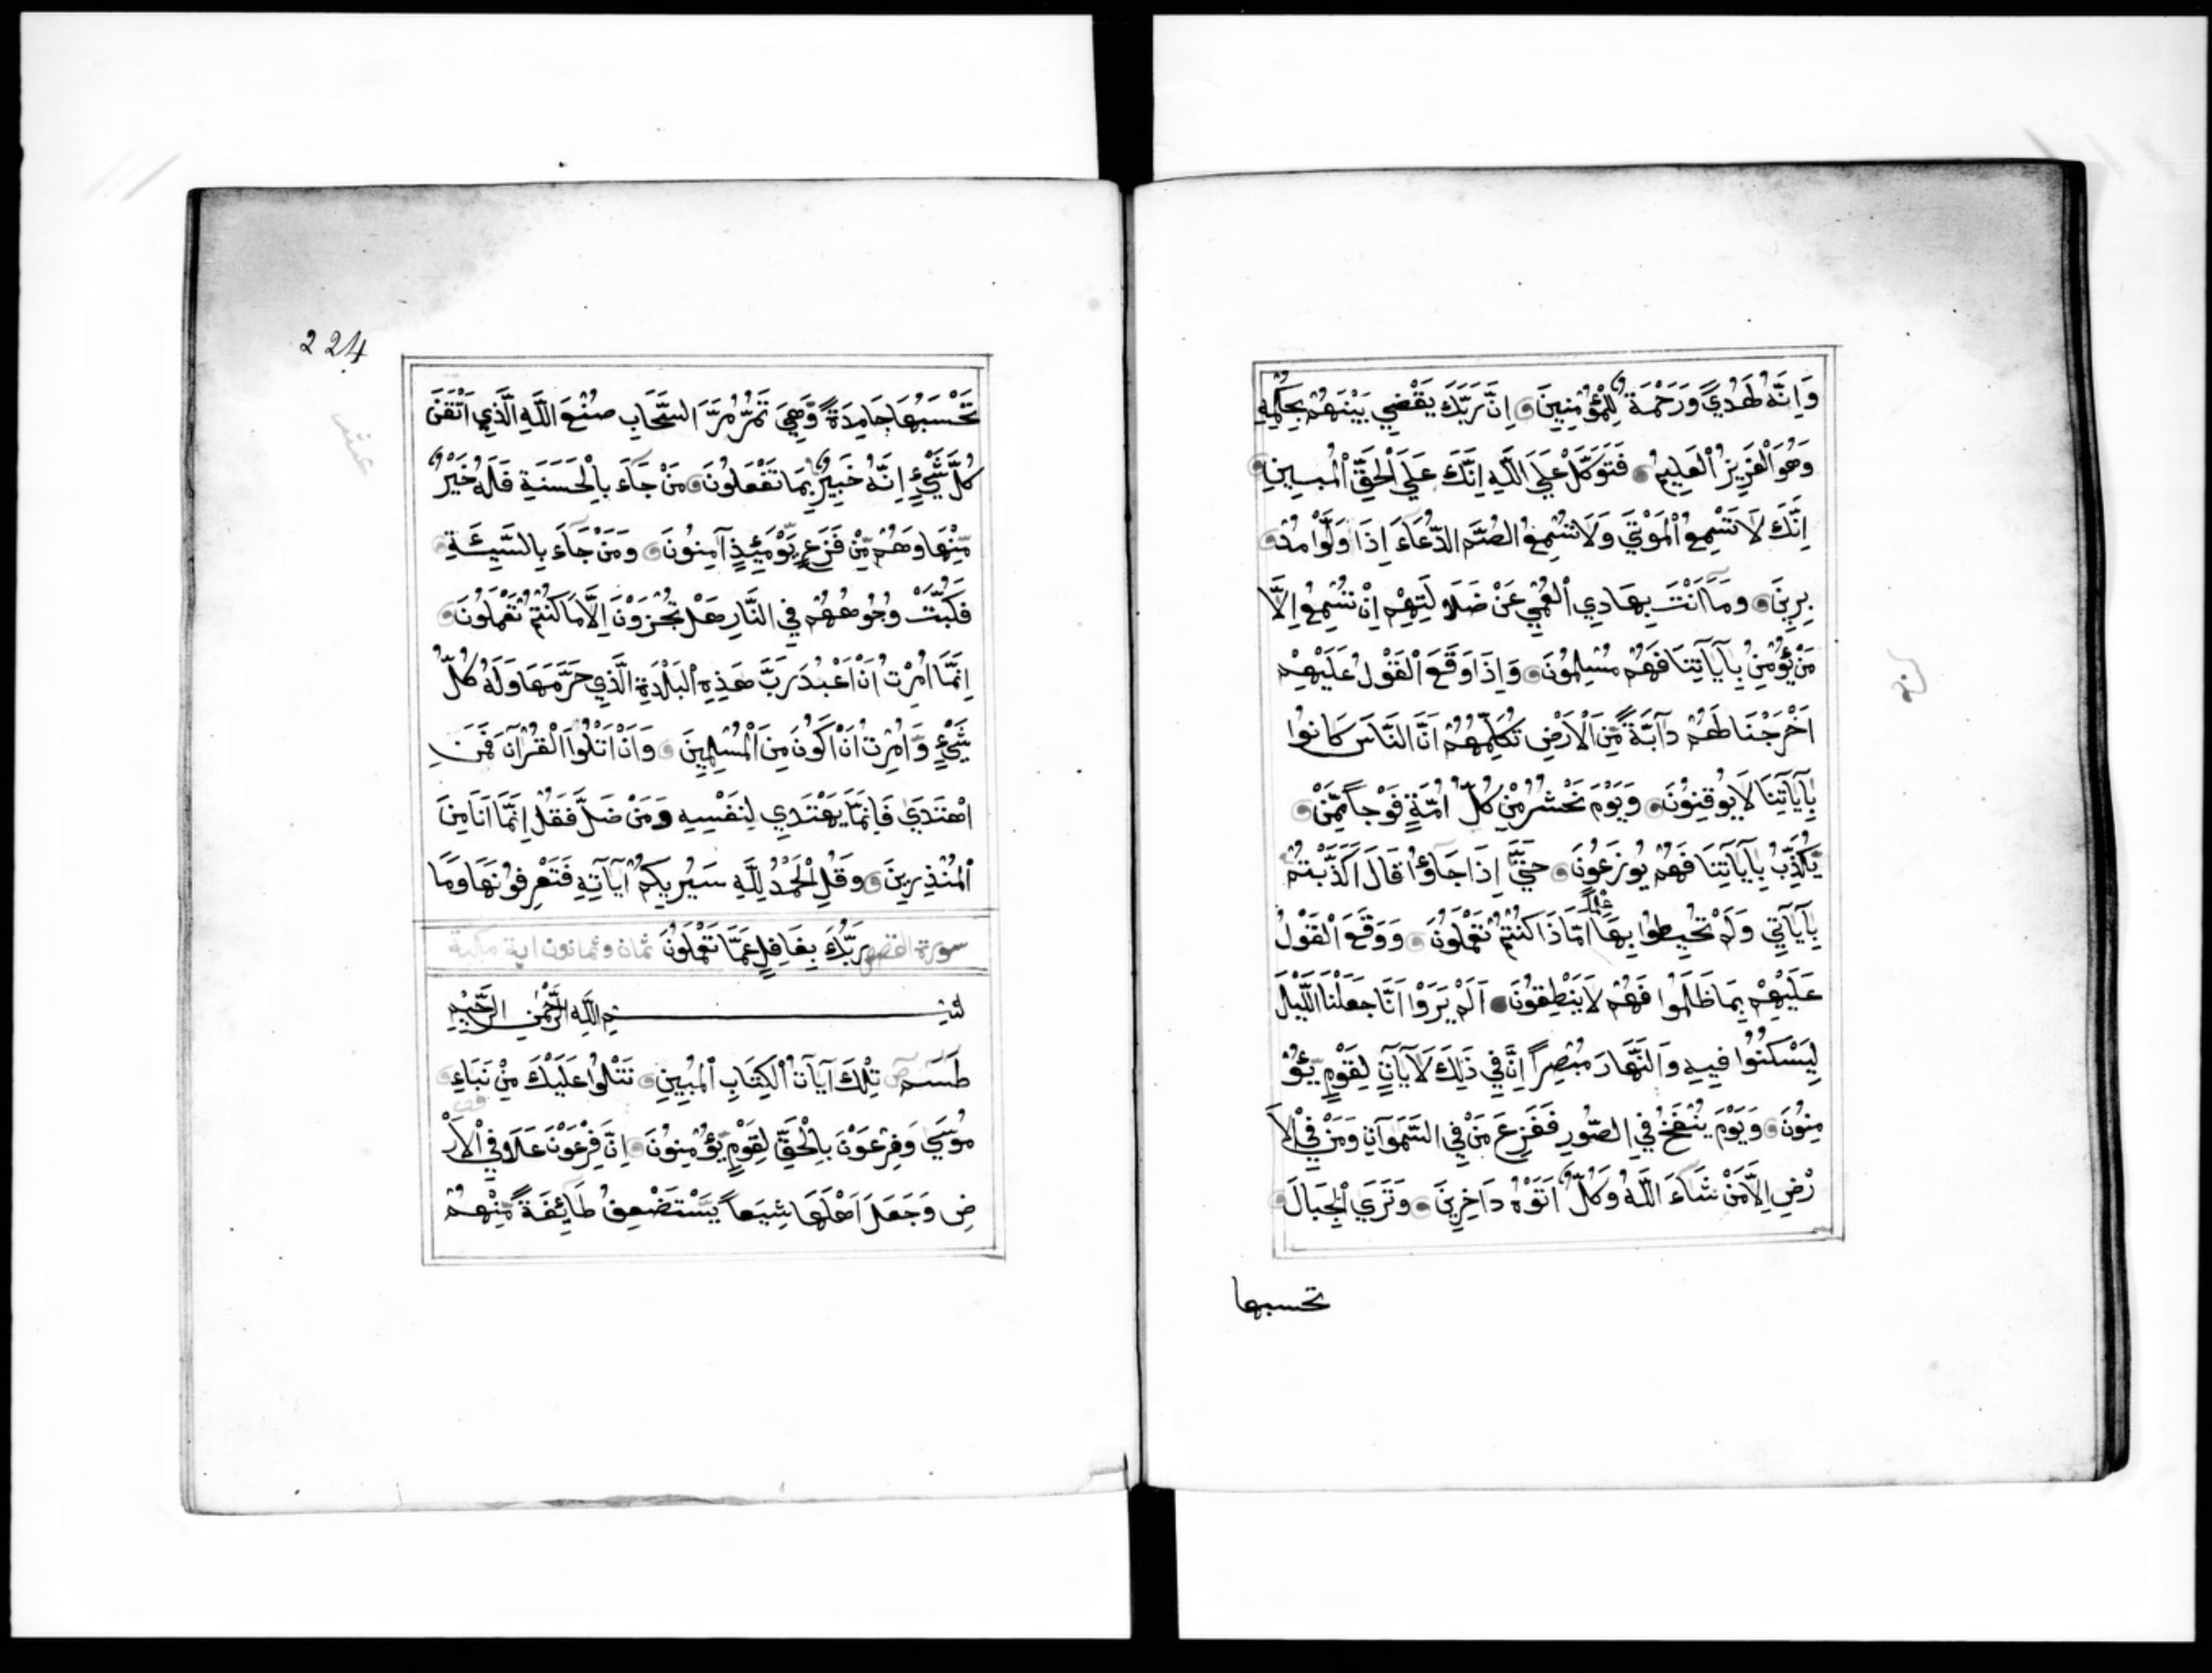 وَاِنَّهُ لَهُدًي وَرَحْمَةٌ لِلْمُؤْمِنِينَ اِنَّ رَبَّكَ يَقْضِي بَيْنَهُمْ بِحُكْمِهِ
وَهُوَ الْعَزِيزُ الْعَلِيمُ فَتَوَكَّلْ عَلَي اللَّهِ اِنَّكَ عَلَي الْحَقِّ الْمُبِينِ
اِنَّكَ لَا تُسْمِعُ الْمَوْتَي وَلَا تُسْمِعُ الصُّمَّ الدُّعَآءَ اِذَا وَلَّوْا مُدْ
بِرِينَ وَمَآ اَنْتَ بِهَادِي الْعُمْيِ عَنْ ضَلَالَتِهِمْ اِنْ تُسْمِعُ اِلَّا
مَنْ يُؤْمِنُ بِآيَاتِنَا فَهُمْ مُسْلِمُونَ وَاِذَا وَقَعَ الْقَوْلُ عَلَيْهِمْ
اَخْرَجْنَا لَهُمْ دَآبَّةً مِنَ الْاَرْضِ تُكَلِّمُهُمْ اَنَّ النَّاسَ كَانُوا
بِآيَاتِنَا لَا يُوقِنُونَ وَيَوْمَ نَحْشُرُ مِنْ كُلِّ اُمَّةٍ فَوْجاً مِمَّنْ
يُكَذِّبُ بِآيَاتِنَا فَهُمْ يُوزَعُونَ حَتَّي اِذَا جَاؤُا قَالَ اَكَذَّبْتُمْ
بِآيَاتِي وَلَمْ تُحِيطُوا بِهَا عِلْماً اَمَّاذَا كُنْتُمْ تَعْمَلُونَ وَوَقَعَ الْقَوْلُ
عَلَيْهِمْ بِمَا ظَلَمُوا فَهُمْ لَا يَنْطِقُونَ اَلَمْ يَرَوْا اَنَّا جَعَلْنَا اللَّيْلَ
لِيَسْكُنُوا فِيهِ وَالنَّهَارَ مُبْصِراً اِنَّ فِي ذَلِكَ لَآيَاتٍ لِقَوْمٍ يُؤْ
مِنُونَ وَيَوْمَ يُنْفَخُ فِي الصُّورِ فَفَزِعَ مَنْ فِي السَّمَوَاتِ وَمَنْ فِي الْاَ
رْضِ اِلَّا مَنْ شَآءَ اللَّهُ وَكُلٌّ اَتَوْهُ دَاخِرِينَ وَتَرَي الْجِبَالَ
تحسبها
224
تَحْسَبُهَا جَامِدَةً وَهِيَ تَمُرُّ مَرَّ السَّحَابِ صُنْعَ اللَّهِ الَّذِي اَتْقَنَ
كُلَّ شَيْءٍ اِنَّهُ خَبِيرٌ بِمَا تَفْعَلُونَ مَنْ جَآءَ بِالْحَسَنَةِ فَلَهُ خَيْرٌ
مِنْهَا وَهُمْ مِنْ فَزَعٍ يَوْمَئِذٍ آمِنُونَ وَمَنْ جَآءَ بِالسَّيِّئَةِ
فَكُبَّتْ وُجُوهُهُمْ فِي النَّارِ هَلْ تُجْزَوْنَ اِلَّا مَا كُنْتُمْ تَعْمَلُونَ
اِنَّمَآ اُمِرْتُ اَنْ اَعْبُدَ رَبَّ هَذِهِ الْبَلْدَةِ الَّذِي حَرَّمَهَا وَلَهُ كُلُّ
شَيْءٍ وَاُمِرْتُ اَنْ اَكُونَ مِنَ الْمُسْلِمِينَ وَاَنْ اَتْلُوَا الْقُرْآنَ فَمَنِ
اهْتَدَي فَاِنَّمَا يَهْتَدِي لِنَفْسِهِ وَمَنْ ضَلَّ فَقُلْ اِنَّمَآ اَنَا مِنَ
الْمُنْذِرِينَ وَقُلِ الْحَمْدُ لِلَّهِ سَيُرِيكُمْ آيَاتِهِ فَتَعْرِفُونَهَا وَمَا
سورة القصص رَبُّكَ بِغَافِلٍ عَمَّا تَعْمَلُونَ ثمان وثمانون اية مكية
بِسْمِ اللَّهِ الرَّحْمَنِ الرَّحِيمِ
طَسم تِلْكَ آيَاتُ الْكِتَابِ الْمُبِينِ نَتْلُوا عَلَيْكَ مِنْ نَبَاءِ
مُوسَي وَفِرْعَوْنَ بِالْحَقِّ لِقَوْمٍ يُؤْمِنُونَ اِنَّ فِرْعَوْنَ عَلَا فِي الْاَرْ
ضِ وَجَعَلَ اَهْلَهَا شِيَعاً يَسْتَضْعِفُ طَآئِفَةً مِنْهُمْ